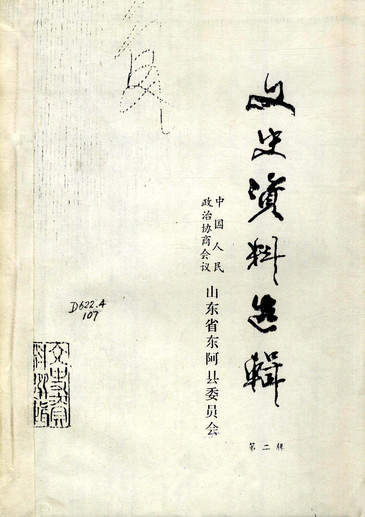 文史資料选輯
第二辑
中国人民
政治协商会议
山东省东阿县委员会
D622.4
107